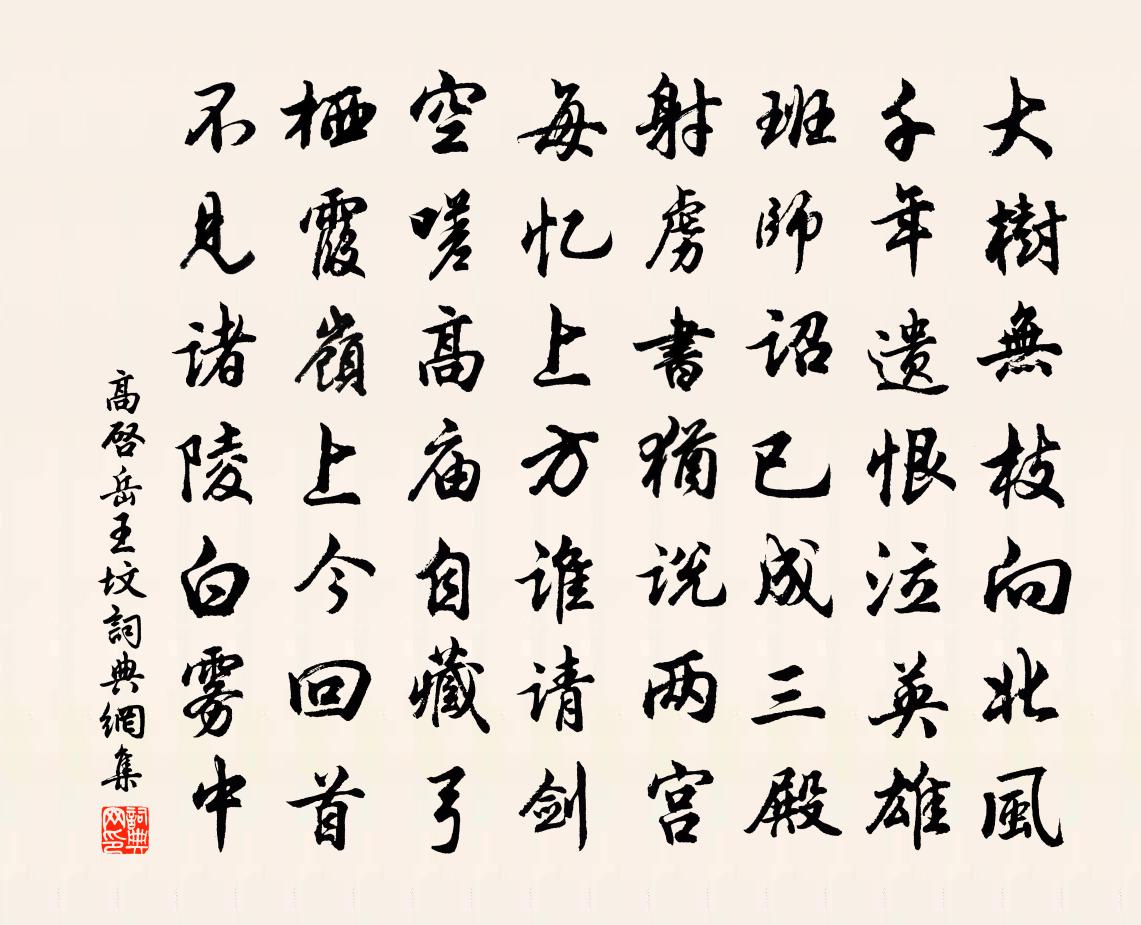 大樹無枝向北風
千年遗恨泣英雄
班師诏已成三殿
射虏書猶説两宫
每忆上方谁请剑
空嗟高庙自藏弓
栖霞嶺上今回首
不見诸陵白雾中
高啓岳王坟詞典網集
詞典网印